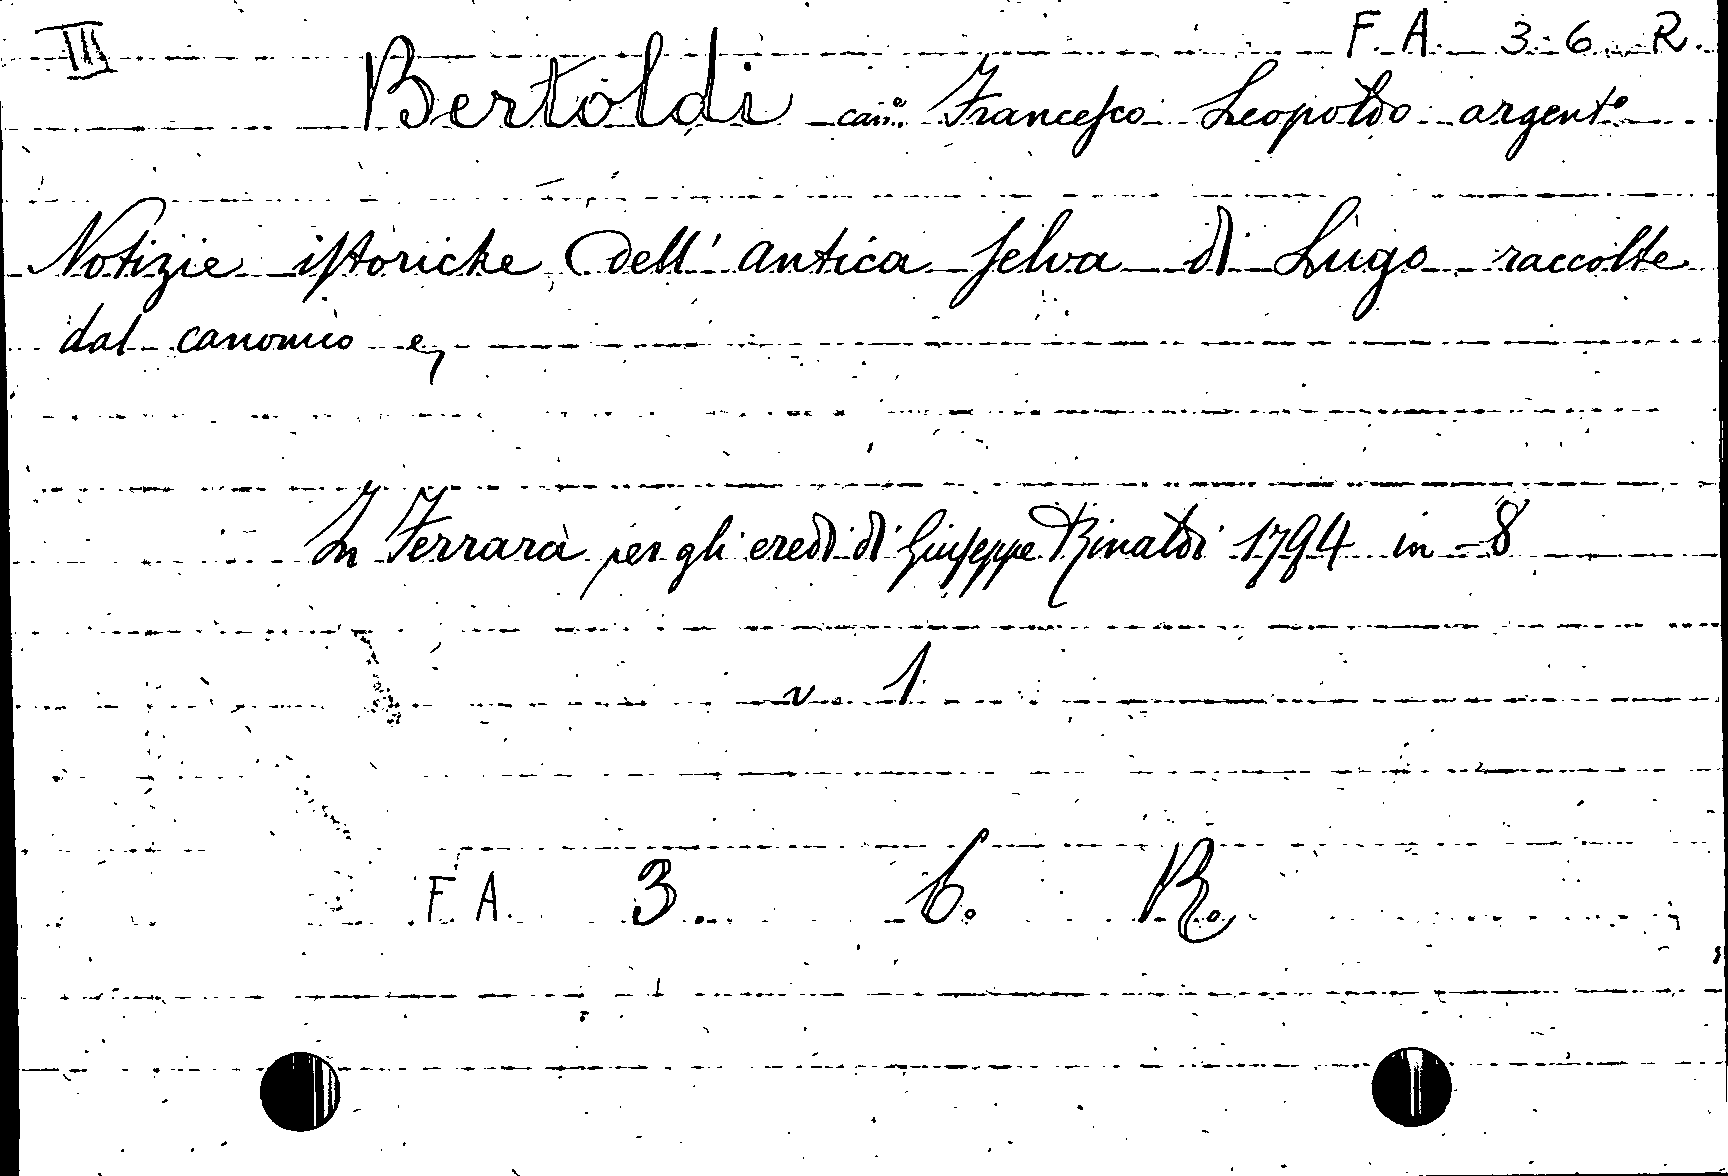 III F. A. 3. 6. R.
Bertoldi can.º Francesco Leopoldo argent.º
Notizie istoriche dell' antica selva di Lugo raccolte
dal canonico e,
In Ferrara per gli eredi di Giuseppe Rinaldi 1794 in 8
v. 1
F. A. 3. 6. R.